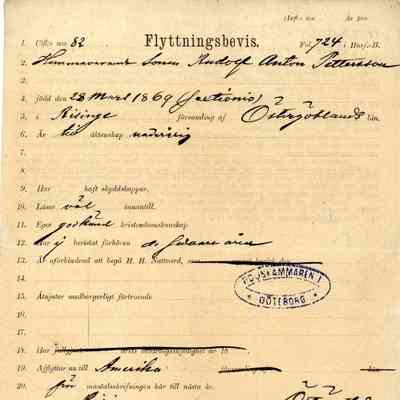 Utfl. no 82 Flyttningsbevis. Fol. 724 i Husf.-B.
2. Hemmavarande Sonen Rudolf Anton Pettersson
3.
4. född den 28 Mars 1869 (sextionio)
5. i Risinge församling af Östergötlands län.
6. Är till äktenskap
7.
8.
9. Har haft skyddskoppor.
10. Läser väl innantill.
11. Eger godkänd kristendomskunskap.
12. Har ej bevistat förhören de senare åren
13. Är oförhindrad att begå H. H. Nattvard,
14.
PROSKAMMAREN I
GÖTEBORG
15. Åtnjuter medborgerligt förtroende
16.
17.
18. Har
19. Afflyttar nu till Amerika
20. för mantalsskrifningen här till nästa år.